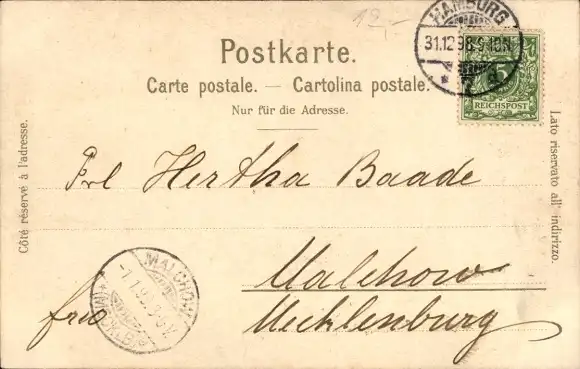 12.-
HAMBURG
31.12.98.9-10N
Postkarte.
5
REICHSPOST
Carte postale. — Cartolina postale.
Nur für die Adresse.
Côté réservé à l'adresse.
Lato riservato all' indirizzo.
Frl Hertha Baade
Malchow
Mecklenburg
MALCHOW
frei